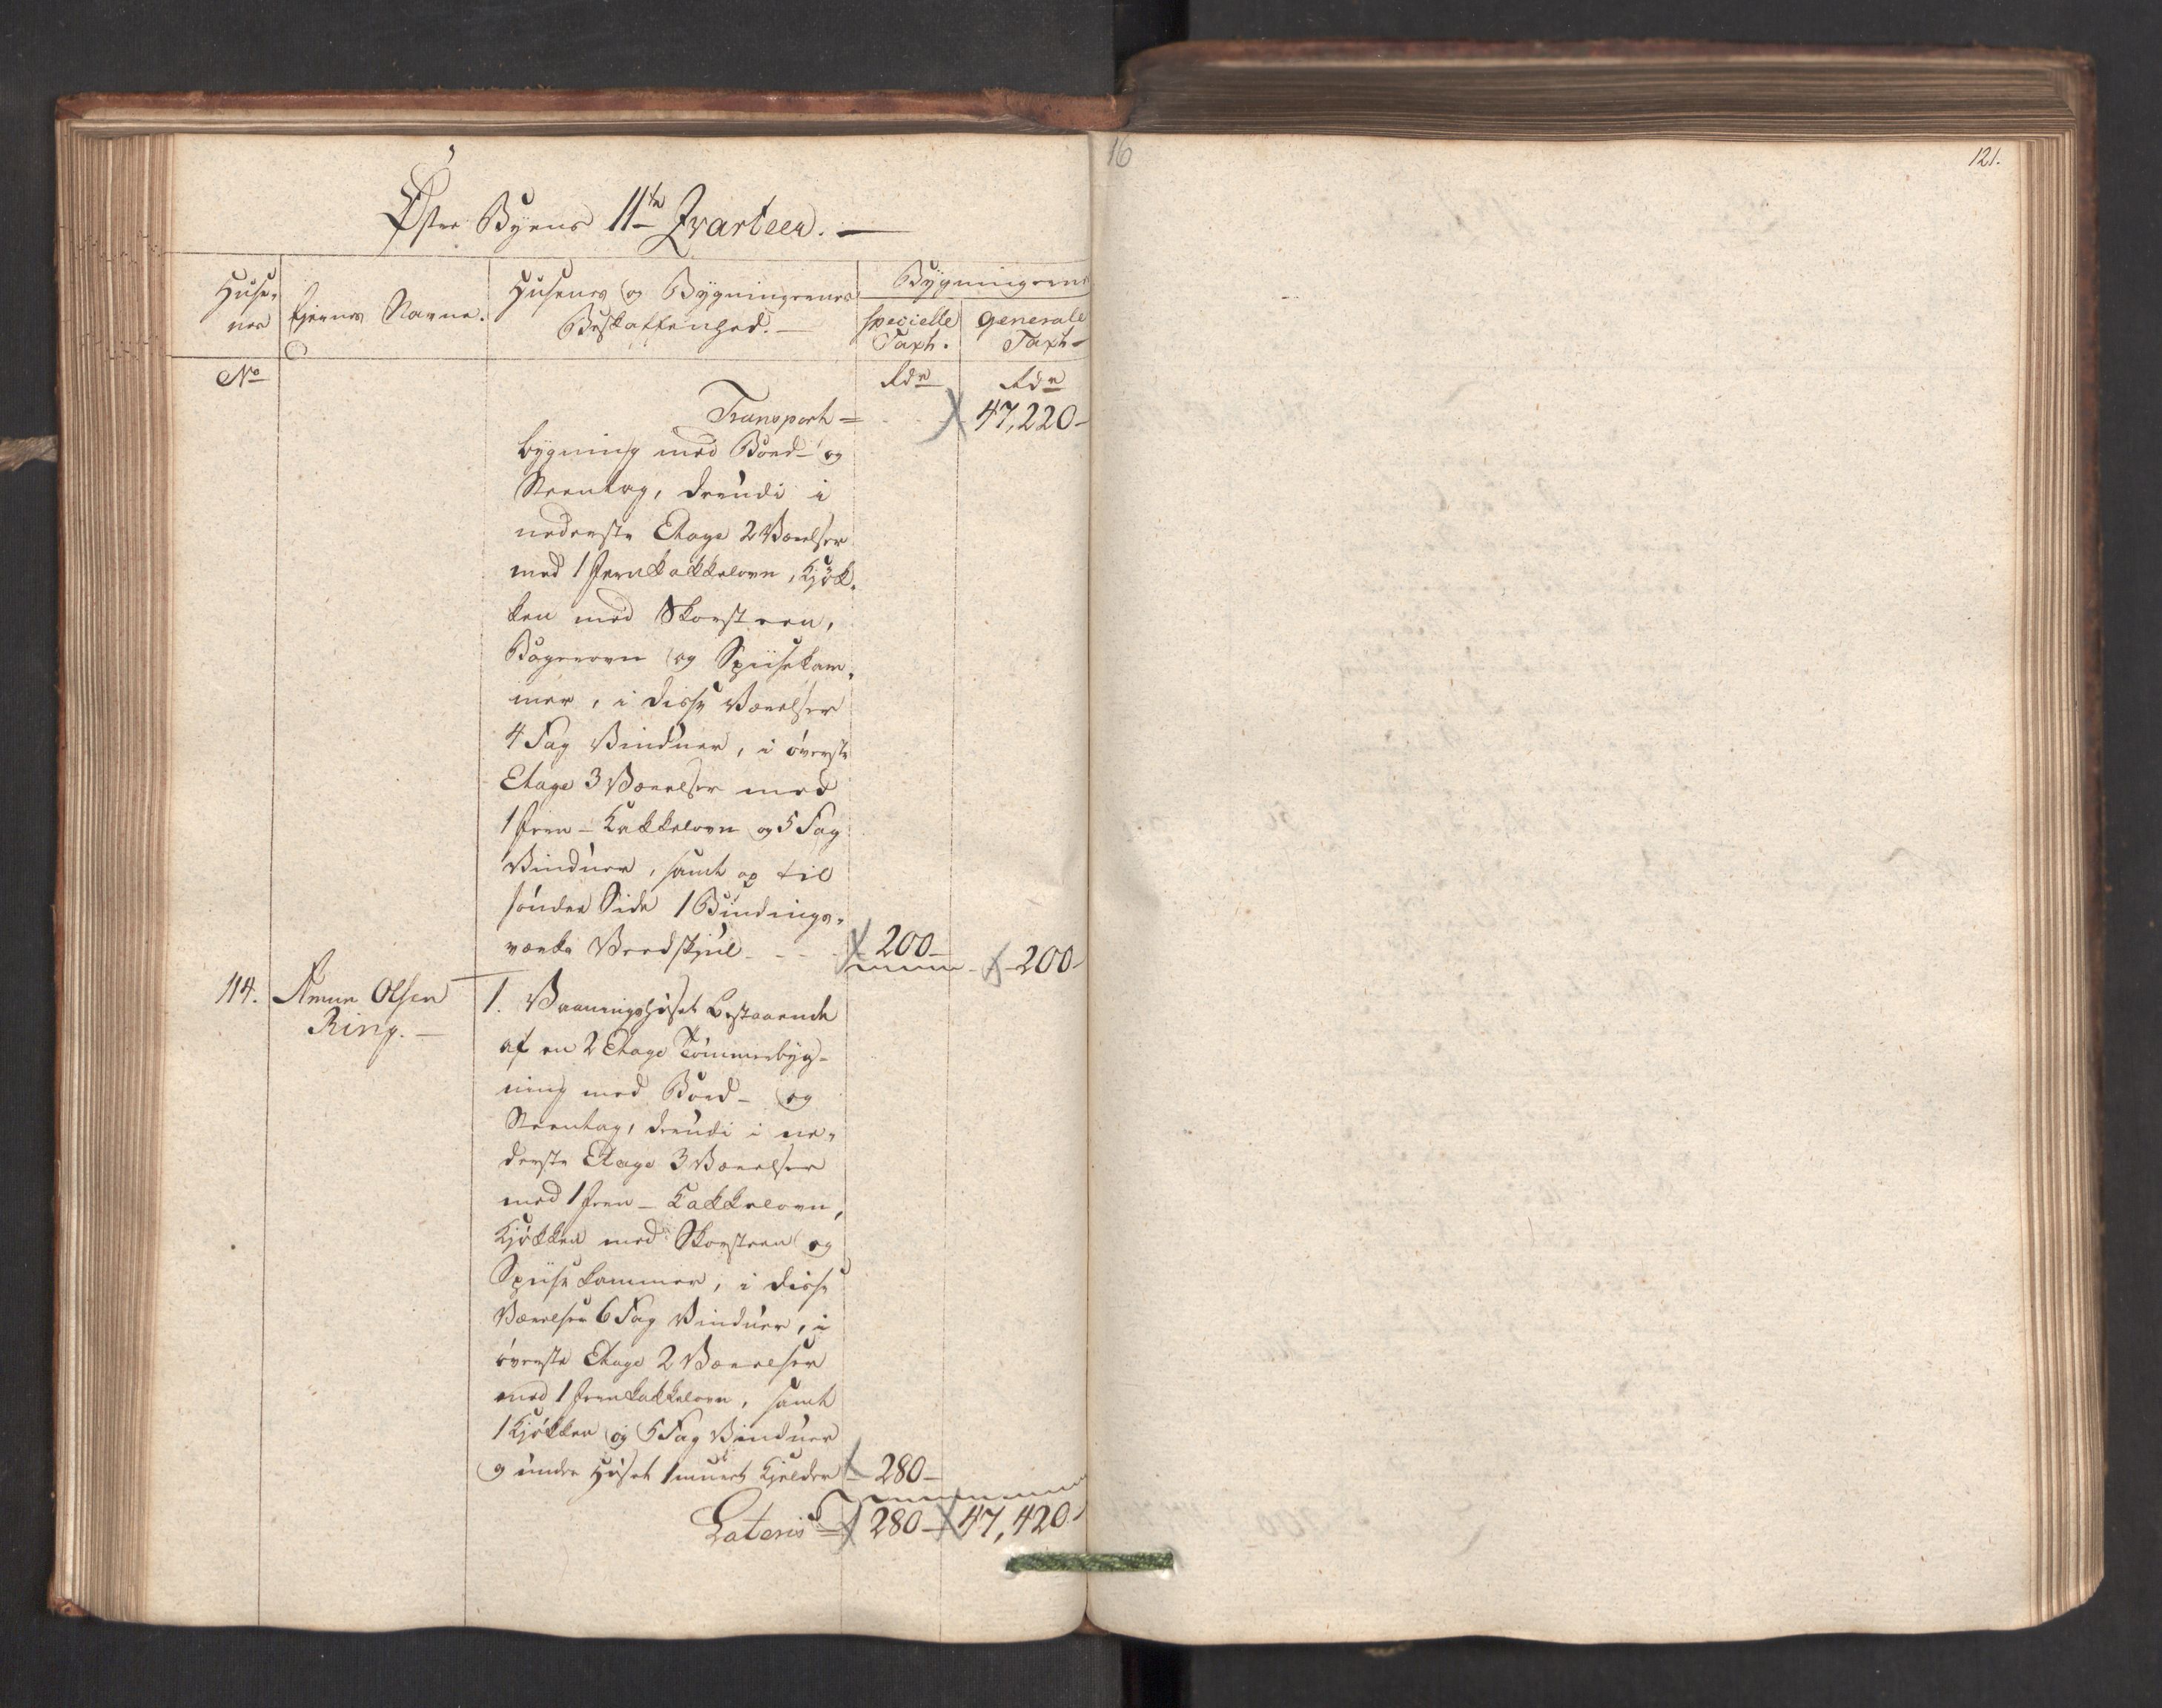 Østre Byens 11te Qvarteer. —
Huse-
nes
Ejernes Navne.
Husenes og Bygningernes
Beskaffenhed. —
Bygningerne
specielle
Taxt.
generale
Taxt
No
Rdr
Rdr
Transport =
47,220-
bygning med Bord- og
Steentag, deeudi i
nederste Etage 2 Værelser
med 1 Jernkakkelovn, Kjök-
ken med Skorsteen,
Bagerovn og Spiisekam-
mer, i disse Værelser
4 Fag Vinduer, i överste
Etage 3 Værelser med
1 Jern-Kakkelovn og 5 Fag
Vinduer, samt op til
söndre Side 1 Bindings-
værks Vedskjul - - -
200-
200-
114.
Amun Olsen
Ring. —
1. Vaaningshuset bestaaende
af en 2 Etage Tömmerbyg-
ning med Bord- og
Steentag, deeudi i ne-
derste Etage 3 Værelser
med 1 Jern-Kakkelovn,
Kjökken med Skorsteen og
Spiisekammer, i disse
Værelser 6 Fag Vinduer, i
överste Etage 2 Værelser
med 1 Jernkakkelovn, samt
1 Kjökken og 5 Fag Vinduer
og under Huset 1 muret Kjelder
280-
Lateris
280-
47,420-
16
121.